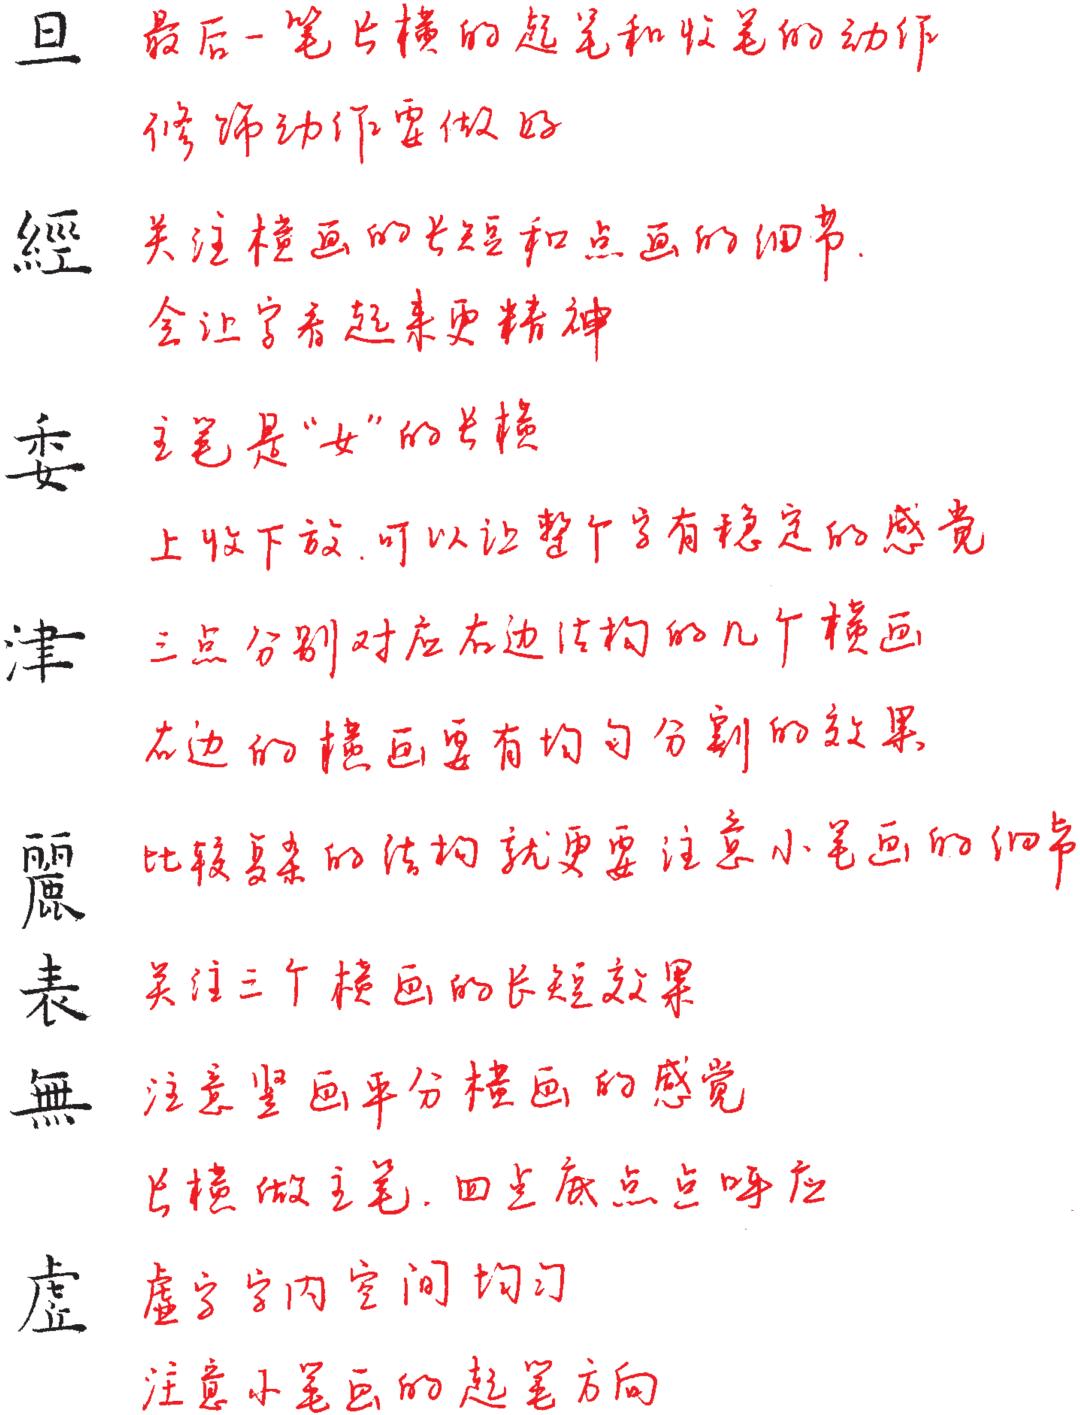 旦 最后一笔长横的起笔和收笔的动作
修饰动作要做好
經 关注横画的长短和点画的细节.
会让字看起来更精神
委 主笔是“女”的长横
上收下放.可以让整个字有稳定的感觉
津 三点分别对应右边结构的几个横画
右边的横画要有均匀分割的效果
麗 比较复杂的结构就更要注意小笔画的细节
表 关注三个横画的长短效果
無 注意竖画平分横画的感觉
长横做主笔.四点底点点呼应
虛 虚字字内空间均匀
注意小笔画的起笔方向